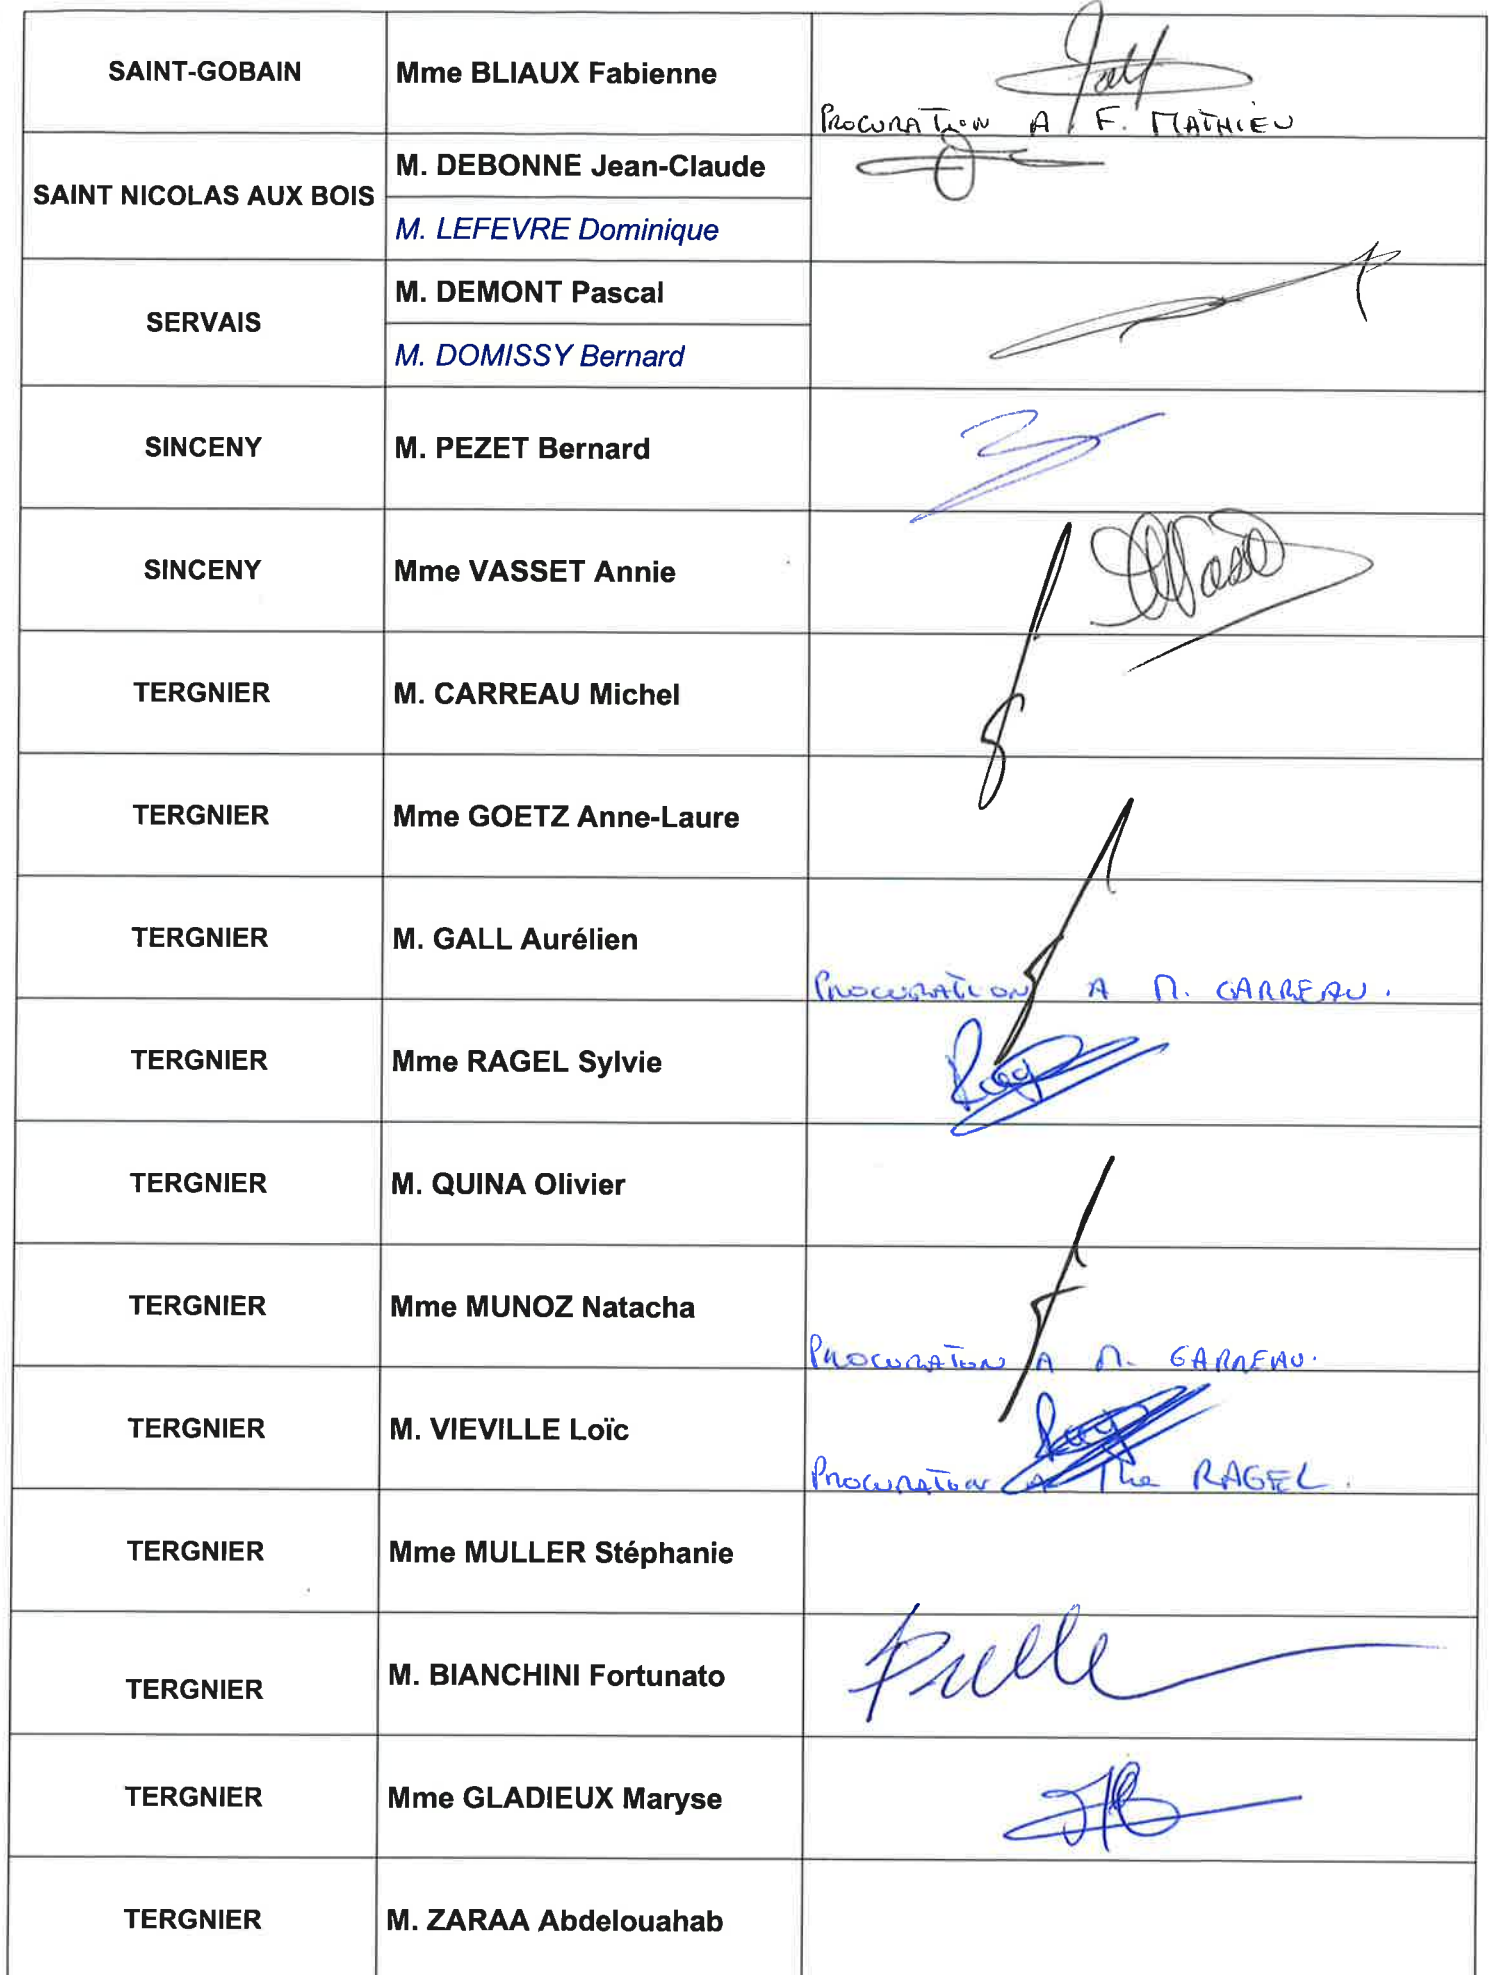 SAINT-GOBAIN
Mme BLIAUX Fabienne
PROCURATION A F. MATHIEU
SAINT NICOLAS AUX BOIS
M. DEBONNE Jean-Claude
M. LEFEVRE Dominique
SERVAIS
M. DEMONT Pascal
M. DOMISSY Bernard
SINCENY
M. PEZET Bernard
SINCENY
Mme VASSET Annie
TERGNIER
M. CARREAU Michel
TERGNIER
Mme GOETZ Anne-Laure
TERGNIER
M. GALL Aurélien
PROCURATION A M. CARREAU.
TERGNIER
Mme RAGEL Sylvie
TERGNIER
M. QUINA Olivier
TERGNIER
Mme MUNOZ Natacha
PROCURATION A M. CARREAU.
TERGNIER
M. VIEVILLE Loïc
PROCURATION A Mme RAGEL.
TERGNIER
Mme MULLER Stéphanie
TERGNIER
M. BIANCHINI Fortunato
TERGNIER
Mme GLADIEUX Maryse
TERGNIER
M. ZARAA Abdelouahab